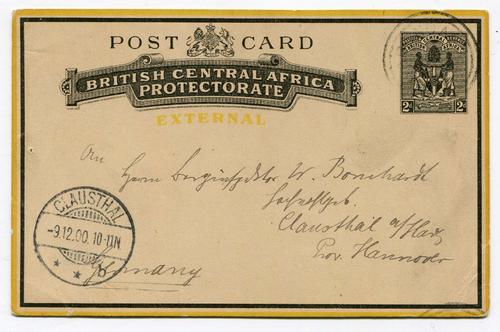 POST CARD
BRITISH CENTRAL AFRICA
PROTECTORATE
EXTERNAL
BRITISH CENTRAL AFRICA
2d 2d
An
Herrn W. Bornhardt
Clausthal a/Harz
Prov. Hannover
Germany
CLAUSTHAL
-9.12.00.10-11N
* b *